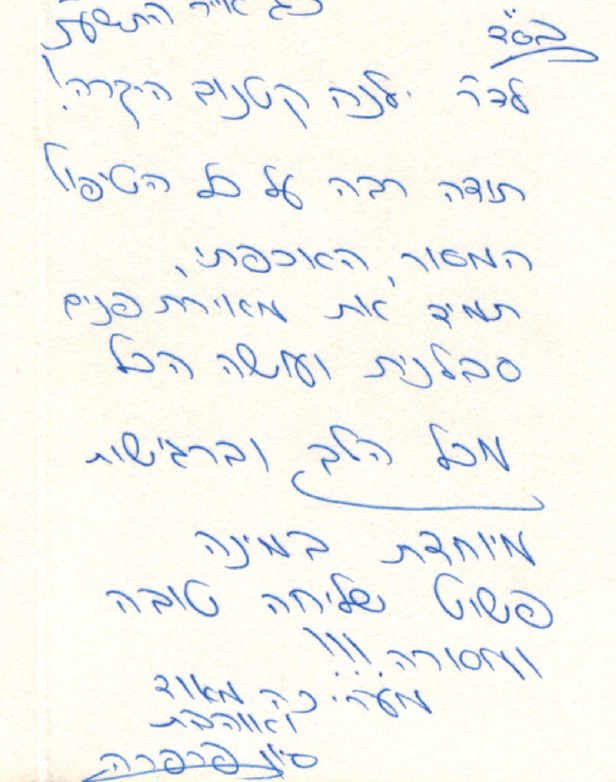 בס"ד
כג אייר התשע"ת
לד"ר ילנה קטנוב היקרה!
תודה רבה על כל הטיפול
המסור, האכפתי,
תמיד את מאירת פנים
סבלנית ועושה הכל
מכל הלב וברגישות
מיוחדת במינה
פשוט שליחה טובה
ומסורה!!!
מעריכה מאוד
ואוהבת